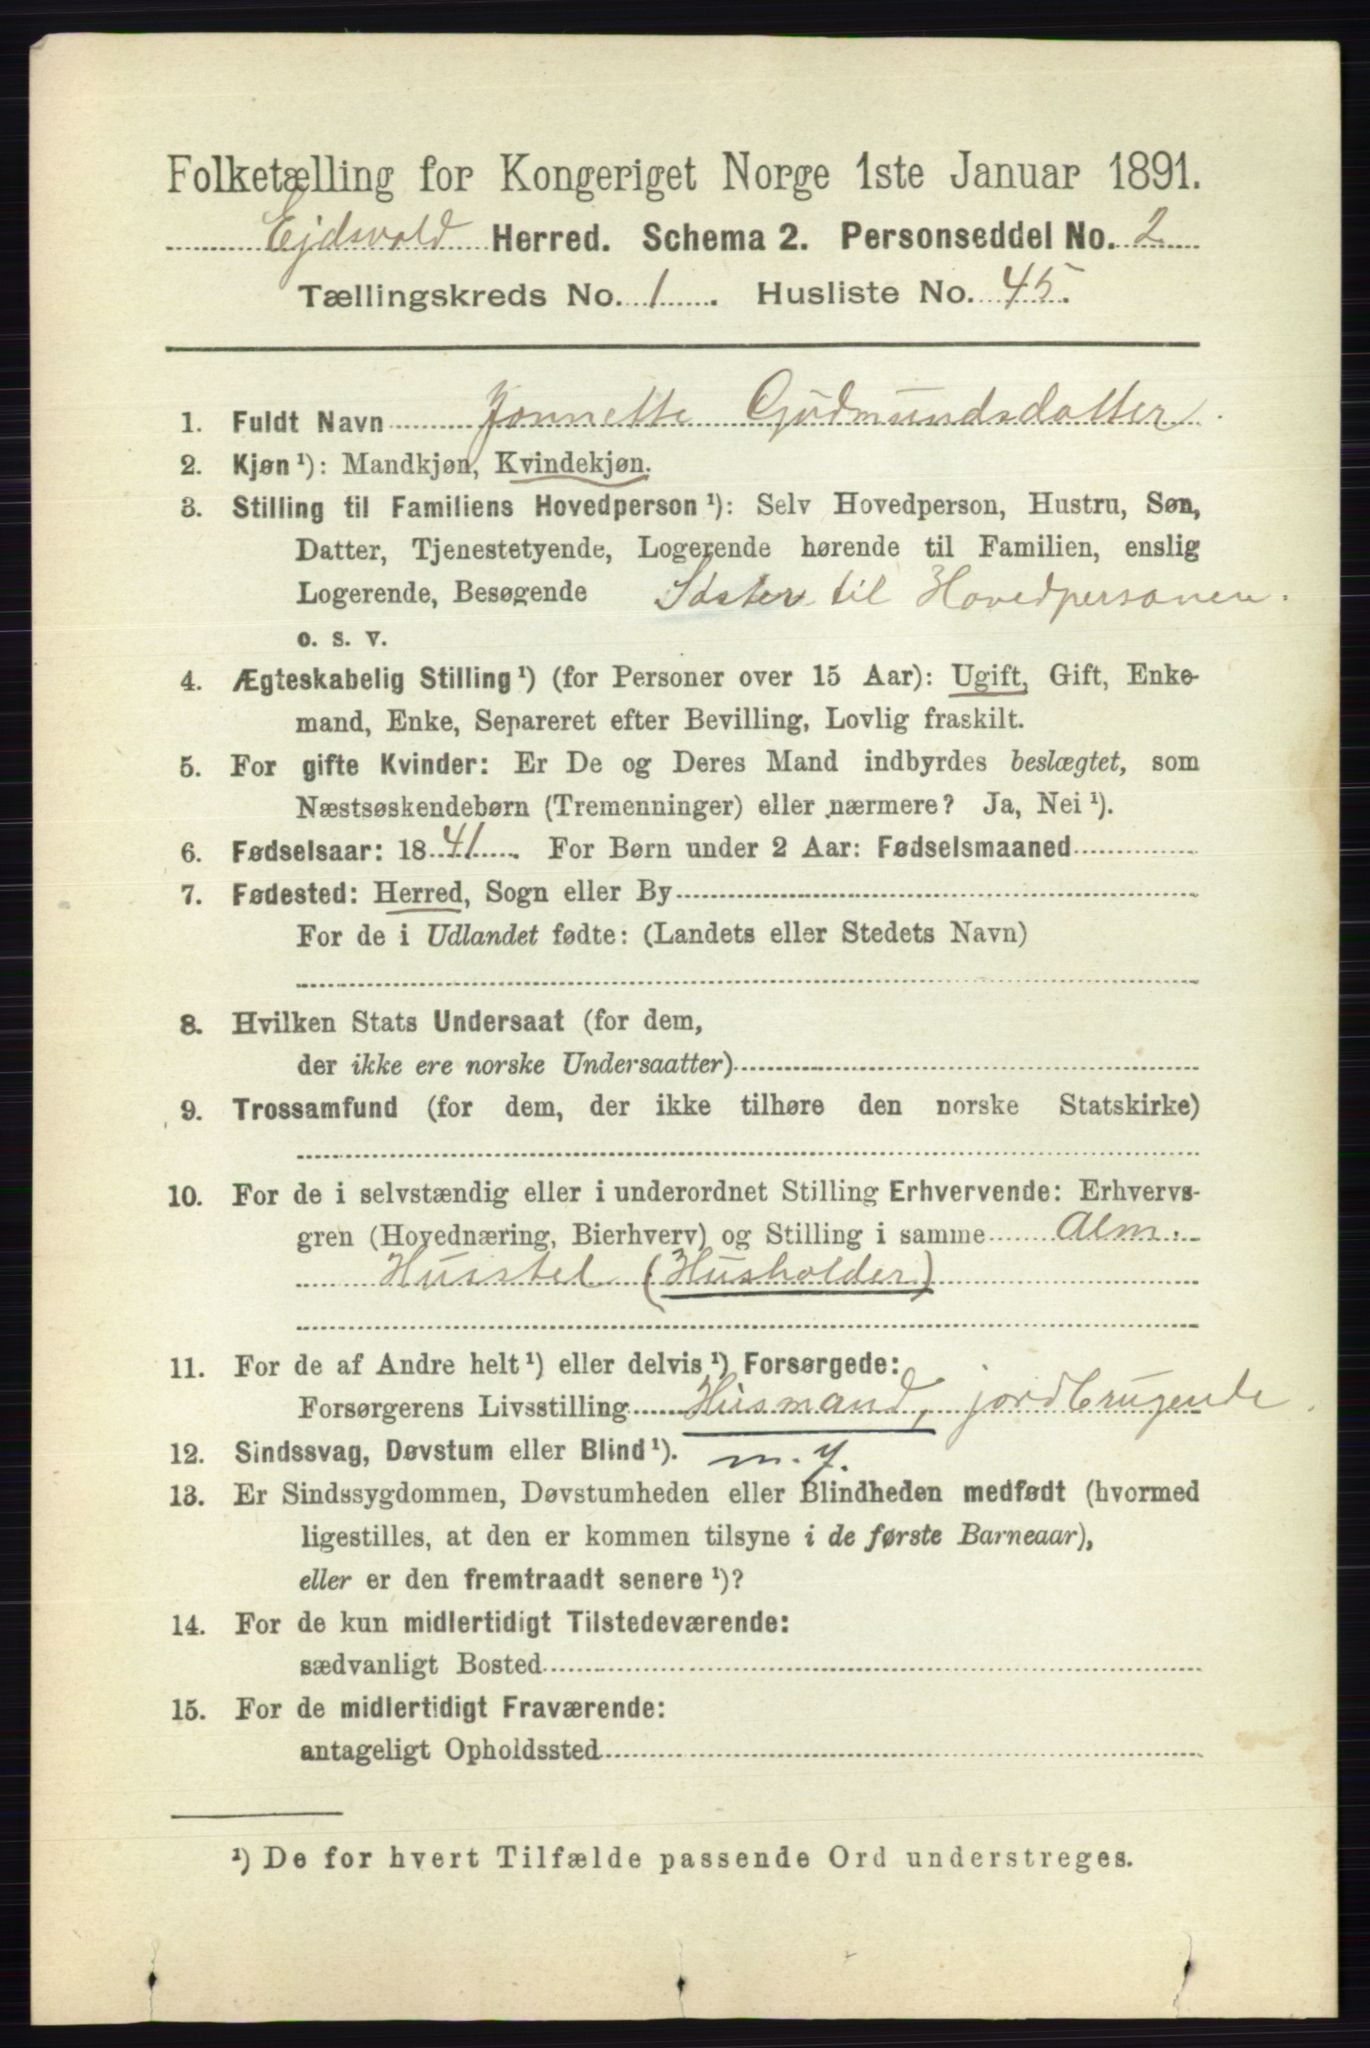 Folketælling for Kongeriget Norge 1ste Januar 1891.
Ejdsvold Herred. Schema 2. Personseddel No. 2
Tællingskreds No. 1. Husliste No. 45.
1. Fuldt Navn Jonnette Gudmundsdatter.
2. Kjøn ¹): Mandkjøn, Kvindekjøn.
3. Stilling til Familiens Hovedperson ¹): Selv Hovedperson, Hustru, Søn,
Datter, Tjenestetyende, Logerende hørende til Familien, enslig
Logerende, Besøgende Søster til Hovedpersonen.
o. s. v.
4. Ægteskabelig Stilling ¹) (for Personer over 15 Aar): Ugift, Gift, Enke-
mand, Enke, Separeret efter Bevilling, Lovlig fraskilt.
5. For gifte Kvinder: Er De og Deres Mand indbyrdes beslægtet, som
Næstsøskendebørn (Tremenninger) eller nærmere? Ja, Nei ¹).
6. Fødselsaar: 1841. For Børn under 2 Aar: Fødselsmaaned
7. Fødested: Herred, Sogn eller By
For de i Udlandet fødte: (Landets eller Stedets Navn)
8. Hvilken Stats Undersaat (for dem,
der ikke ere norske Undersaatter)
9. Trossamfund (for dem, der ikke tilhøre den norske Statskirke)
10. For de i selvstændig eller i underordnet Stilling Erhvervende: Erhvervs-
gren (Hovednæring, Bierhverv) og Stilling i samme Alm.
Husstel (Husholder)
11. For de af Andre helt ¹) eller delvis ¹) Forsørgede:
Forsørgerens Livsstilling Husmand, jordbrugende.
12. Sindssvag, Døvstum eller Blind ¹).
13. Er Sindssygdommen, Døvstumheden eller Blindheden medfødt (hvormed
ligestilles, at den er kommen tilsyne i de første Barneaar),
eller er den fremtraadt senere ¹)?
14. For de kun midlertidigt Tilstedeværende:
sædvanligt Bosted
15. For de midlertidigt Fraværende:
antageligt Opholdssted
¹) De for hvert Tilfælde passende Ord understreges.